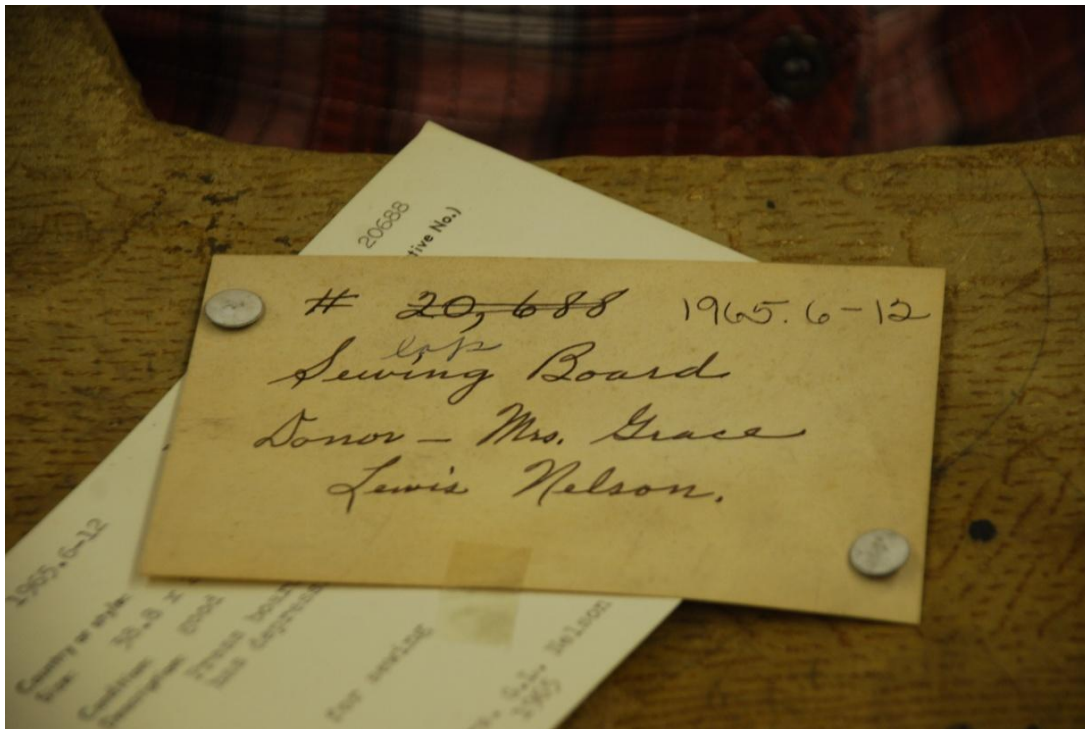 20688
tive No.)
# 20,688 1965.6-12
lap
Sewing Board
Donor - Mrs. Grace
Lewis Nelson.
1965.6-12
Country or style:
Size: 38.8 x
Condition: good
Description:
has depress
for sewing
G.L. Nelson
1965